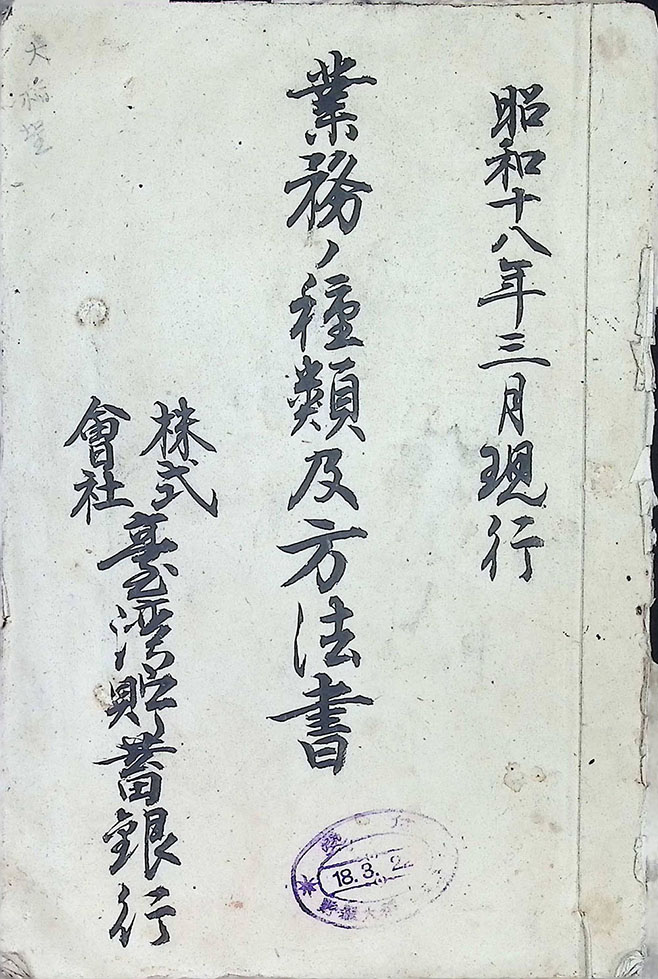 昭和十八年三月現行
業務ノ種類及方法書
株式
會社
臺灣貯蓄銀行
大稻埕
18.3.2